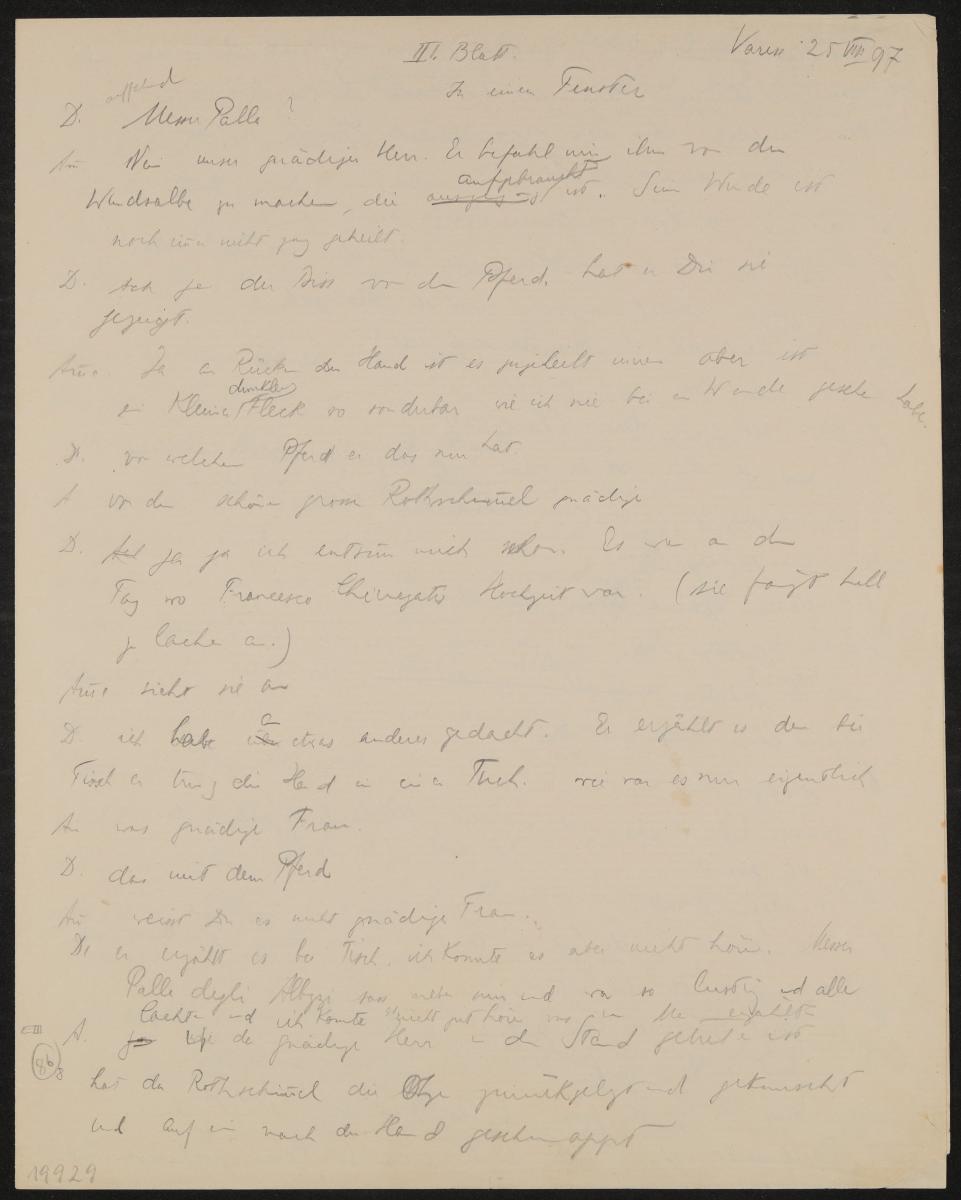 III. Blatt.
Varese 25 VIII 97
In einem Fenster
D. Messer Palla?
An Nein unser gnädiger Herr. Er befahl mir ihm von der
aufgebraucht
Wundsalbe zu machen, die ist. Seine Wunde ist
noch immer nicht ganz geheilt.
D. Ach ja der Biss von dem Pferd. hat er Dir sie
gezeigt.
Ja am Rücken der Hand ist es zugeheilt innen aber ist
dunkler
ein kleiner Fleck so sonderbar wie ich nie bei einer Wunde gesehen habe.
D. von welchem Pferd er das nur hat.
A von dem schönen grossen Rothschimmel gnädige
D. Ach ja ja ich entsinn mich schon. Es war an dem
Tag wo Francesco Chimenti's Hochzeit war. (sie fängt hell
zu lachen an.)
sieht sie an
D. ich habe an etwas anderes gedacht. Er erzählte es dann bei
Tisch er trug die Hand in einem Tuch. wie war es nur eigentlich
An was gnädige Frau.
D. das mit dem Pferd
An weisst Du es nicht gnädige Frau.
D. er erzählt es bei Tisch, ich konnte es aber nicht hören. Messer
Palla degli Albizzi sass neben mir und war so lustig und alle
lachten und ich konnte nicht gut hören was
A. wie der gnädige Herr in den Stand getreten ist
hat der Rothschimmel die Ohren zurückgelegt und geknirscht
und auf einmal nach der Hand geschnappt
E III
86
8
19929